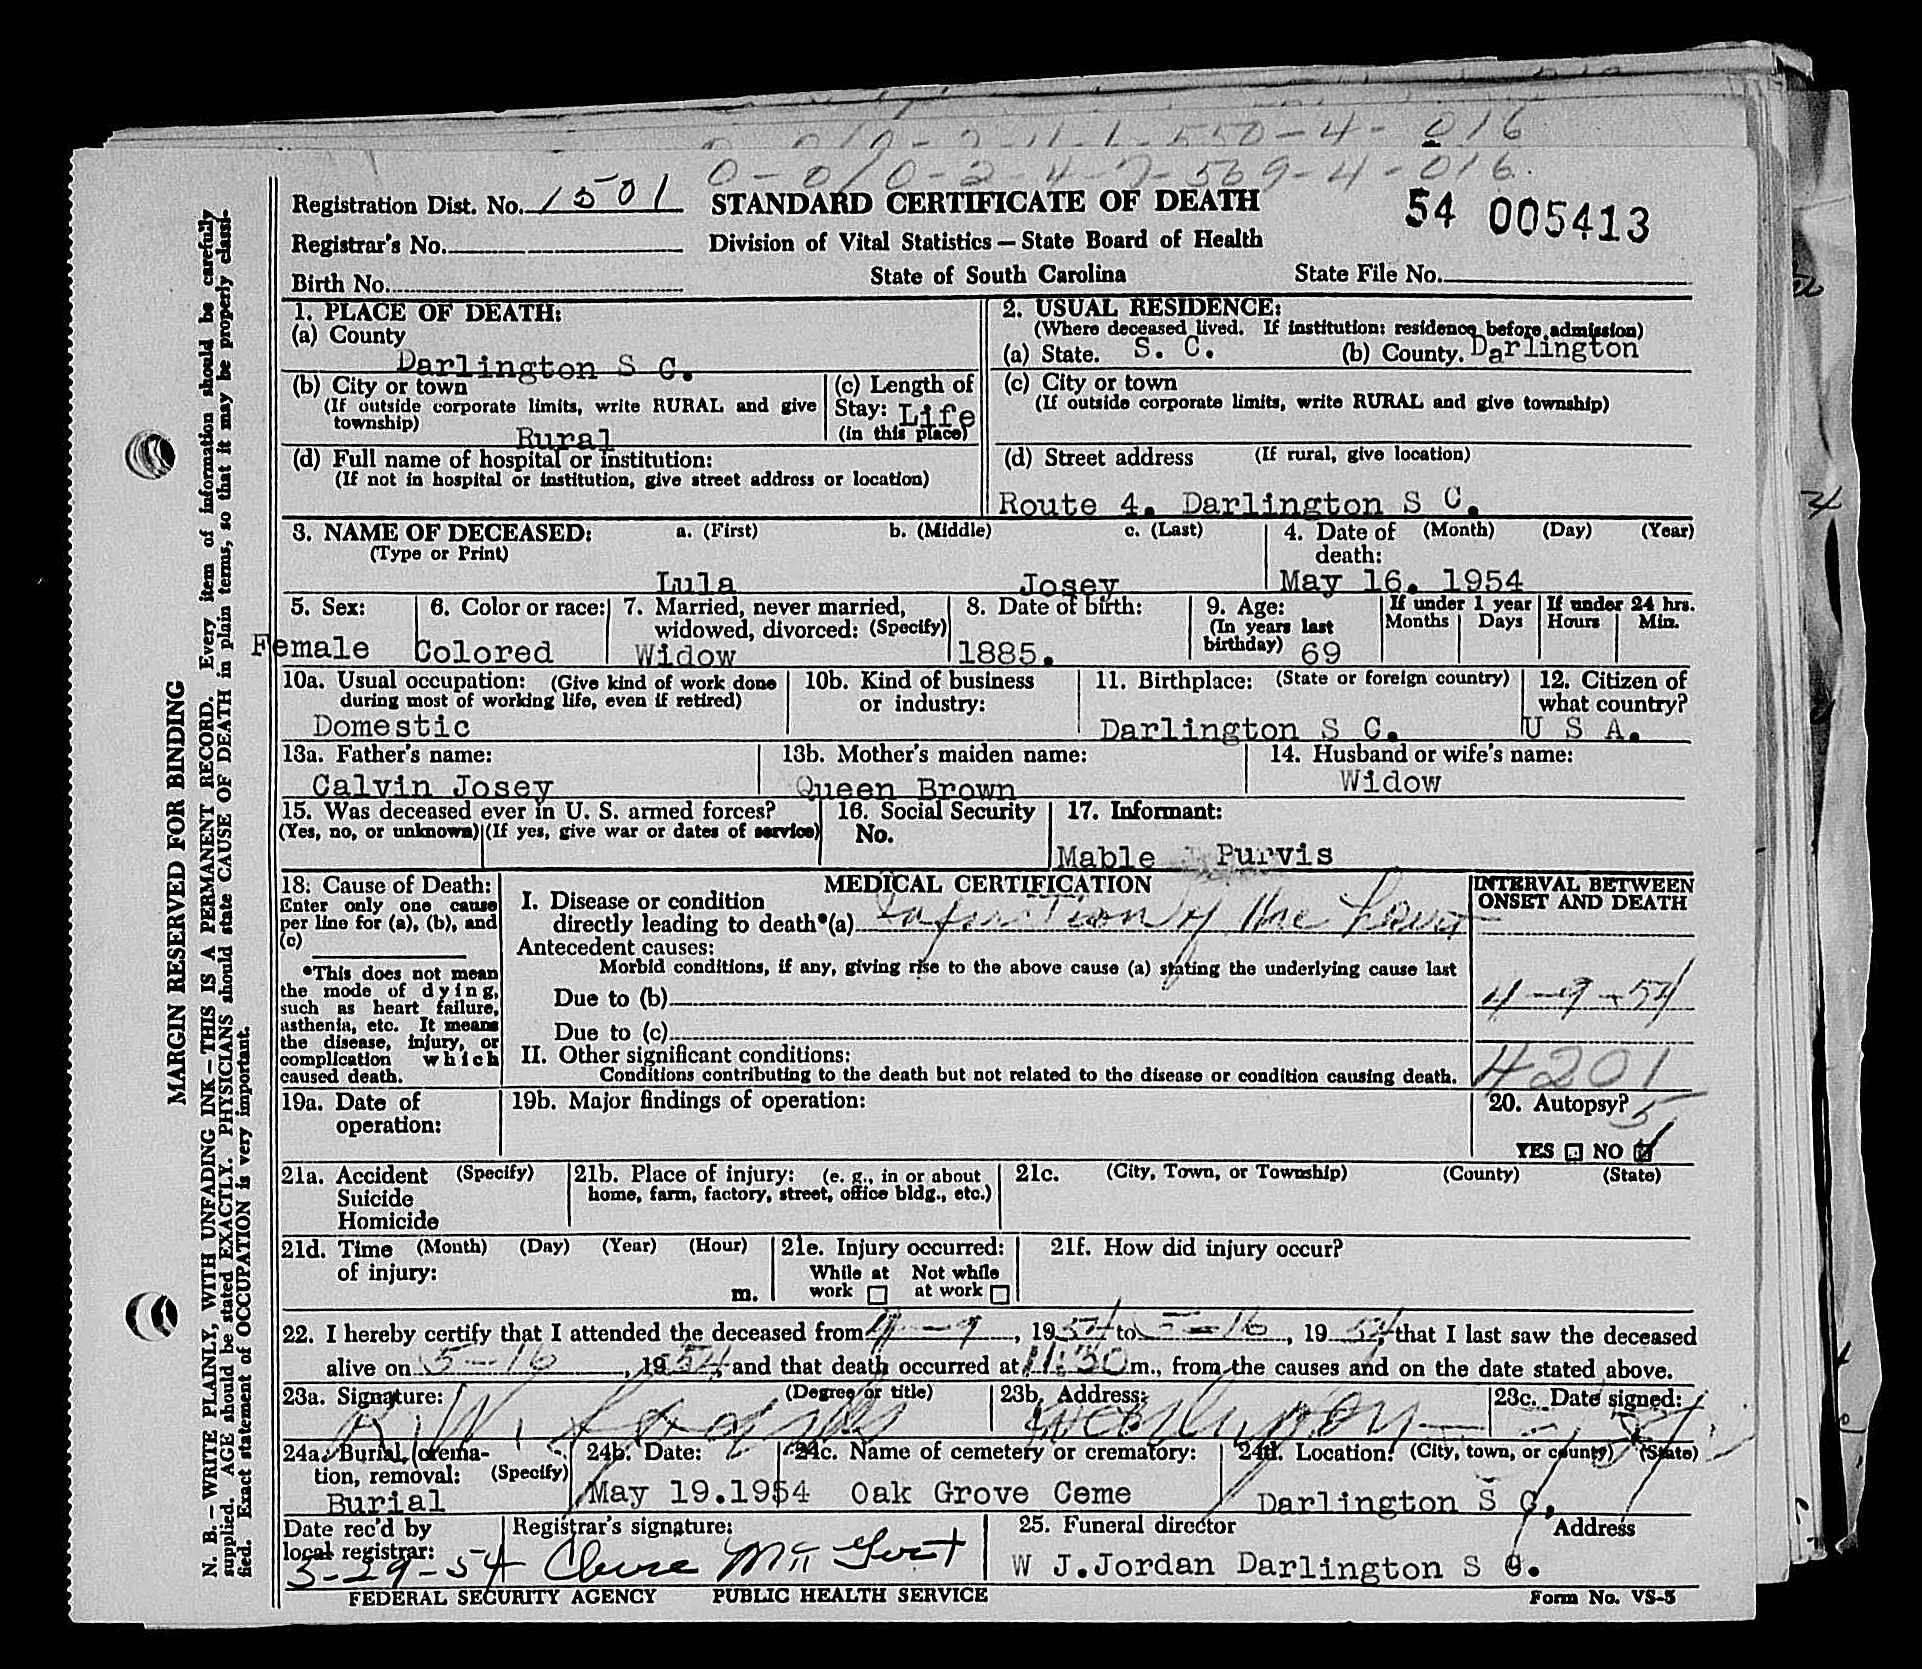 0-0/0-2-4-7-569-4-016
Registration Dist. No. 1501
STANDARD CERTIFICATE OF DEATH
54 005413
Registrar's No.
Division of Vital Statistics — State Board of Health
Birth No.
State of South Carolina
State File No.
1. PLACE OF DEATH:
(a) County
Darlington S C.
2. USUAL RESIDENCE:
(Where deceased lived. If institution: residence before admission)
(a) State. S. C. (b) County. Darlington
(b) City or town
(If outside corporate limits, write RURAL and give
township)
Rural
(c) Length of
Stay: Life
(in this place)
(c) City or town
(If outside corporate limits, write RURAL and give township)
(d) Full name of hospital or institution:
(If not in hospital or institution, give street address or location)
(d) Street address (If rural, give location)
Route 4. Darlington S C.
3. NAME OF DECEASED: a. (First) b. (Middle) c. (Last)
(Type or Print)
Lula Josey
4. Date of (Month) (Day) (Year)
death:
May 16. 1954
5. Sex:
Female
6. Color or race:
Colored
7. Married, never married,
widowed, divorced: (Specify)
Widow
8. Date of birth:
1885.
9. Age:
(In years last
birthday) 69
If under 1 year
Months Days
If under 24 hrs.
Hours Min.
10a. Usual occupation: (Give kind of work done
during most of working life, even if retired)
Domestic
10b. Kind of business
or industry:
11. Birthplace: (State or foreign country)
Darlington S C.
12. Citizen of
what country?
U S A.
13a. Father's name:
Calvin Josey
13b. Mother's maiden name:
Queen Brown
14. Husband or wife's name:
Widow
15. Was deceased ever in U. S. armed forces?
(Yes, no, or unknown) (If yes, give war or dates of service)
16. Social Security
No.
17. Informant:
Mable Purvis
18. Cause of Death:
Enter only one cause
per line for (a), (b), and
(c)
*This does not mean
the mode of dying,
such as heart failure,
asthenia, etc. It means
the disease, injury, or
complication which
caused death.
MEDICAL CERTIFICATION
I. Disease or condition
directly leading to death*(a) of the heart
Antecedent causes:
Morbid conditions, if any, giving rise to the above cause (a) stating the underlying cause last
Due to (b)
Due to (c)
II. Other significant conditions:
Conditions contributing to the death but not related to the disease or condition causing death.
INTERVAL BETWEEN
ONSET AND DEATH
4-9-54
4201
19a. Date of
operation:
19b. Major findings of operation:
20. Autopsy? 5
YES NO
21a. Accident (Specify)
Suicide
Homicide
21b. Place of injury: (e. g., in or about
home, farm, factory, street, office bldg., etc.)
21c. (City, Town, or Township) (County) (State)
21d. Time (Month) (Day) (Year) (Hour)
of injury:
m.
21e. Injury occurred:
While at Not while
work at work
21f. How did injury occur?
22. I hereby certify that I attended the deceased from 4-9, 1954 to 5-16, 1954, that I last saw the deceased
alive on 5-16, 1954, and that death occurred at 11:30 m., from the causes and on the date stated above.
23a. Signature: (Degree or title)
23b. Address:
23c. Date signed:
24a. Burial, crema-
tion, removal: (Specify)
Burial
24b. Date:
May 19.1954
24c. Name of cemetery or crematory:
Oak Grove Ceme
24d. Location: (City, town, or county) (State)
Darlington S C.
Date rec'd by
local registrar:
5-29-54
Registrar's signature:
25. Funeral director Address
W J.Jordan Darlington S C.
FEDERAL SECURITY AGENCY PUBLIC HEALTH SERVICE
Form No. VS-5
MARGIN RESERVED FOR BINDING
N. B.—WRITE PLAINLY, WITH UNFADING INK—THIS IS A PERMANENT RECORD. Every item of information should be carefully
supplied. AGE should be stated EXACTLY. PHYSICIANS should state CAUSE OF DEATH in plain terms, so that it may be properly classi-
fied. Exact statement of OCCUPATION is very important.